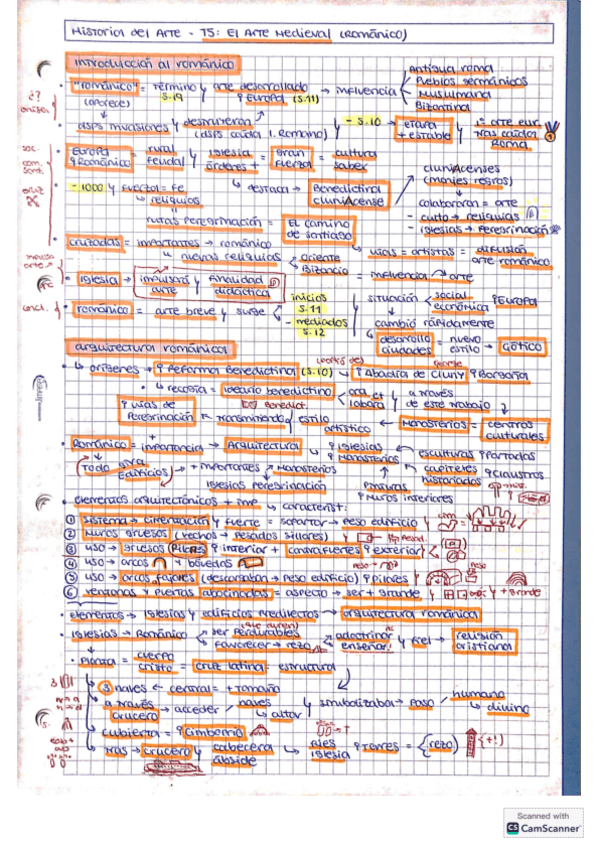 Historia del Arte - T5: El Arte Medieval (Románico)
introducción al románico
"románico" = término y arte desarrollado → influencia
Antigua roma
Pueblos germánicos
Musulmana
Bizantina
(aparece) S.19 Europa (S.11)
dsps invasiones y destruyeron y - S.10 → etapa + estable
(dsps caída I. Romano)
1º arte eur. tras caída Roma
Europa Románico = rural feudal y iglesia órdenes + = gran fuerza = cultura saber
- 1000 y fuerza = fe → destaca → Benedictina cluniacense
cluniacenses (monjes negros)
colaboraron = arte
- culto → reliquias
- iglesias → Peregrinación
reliquias
rutas Peregrinación = El camino de santiago
cruzadas = importantes → románico
vías = artistas = difusión arte románico
nuevas reliquias oriente Bizancio = influencia arte
iglesia → impulsará arte y finalidad didáctica
románico = arte breve y surge
inicios S.11
- mediados S.12
situación social económica Europa
cambió rápidamente
desarrollo ciudades = nuevo estilo → Gótico
arquitectura románica
orígenes → Reforma Benedictina (S.10) Abadía de Cluny Borgoña
recogía = ideario benedictino ora et labora y a través de este trabajo
vías de Peregrinación transmitiendo estilo artístico
Monasterios = centros culturales
Románico = importancia → Arquitectura iglesias Monasterios
esculturas Portadas
capiteles historiados claustros
(Todo gira edificios) → + importantes Monasterios
iglesias Peregrinación
muros interiores
elementos arquitectónicos + imp característ:
① sistema → cimentación y fuerte = soportar → peso edificio
② muros gruesos (hechos → pesados sillares)
③ uso → gruesos Pilares interior + contrafuertes exterior
④ uso → arcos y bóvedas
⑤ uso → arcos fajones (descansaban → peso edificio) Pilares
⑥ ventanas y puertas abocinadas = aspecto → ser + grande
+ grande
elementos → iglesias y edificios predilectos → arquitectura románica
iglesias → Románico ser perdurables
favorecer → rezo
adoctrinar enseñar y fiel → religión cristiana
Planta = cuerpo cristo = cruz latina = estructura
③ naves ← central = + tamaño
a través crucero → acceder naves altar y simbolizaba → paso humano → divino
cubierta = cimborrio
tras → crucero y cabecera ábside
pies iglesia torres = (rezo) (+!)
Scanned with
CS CamScanner